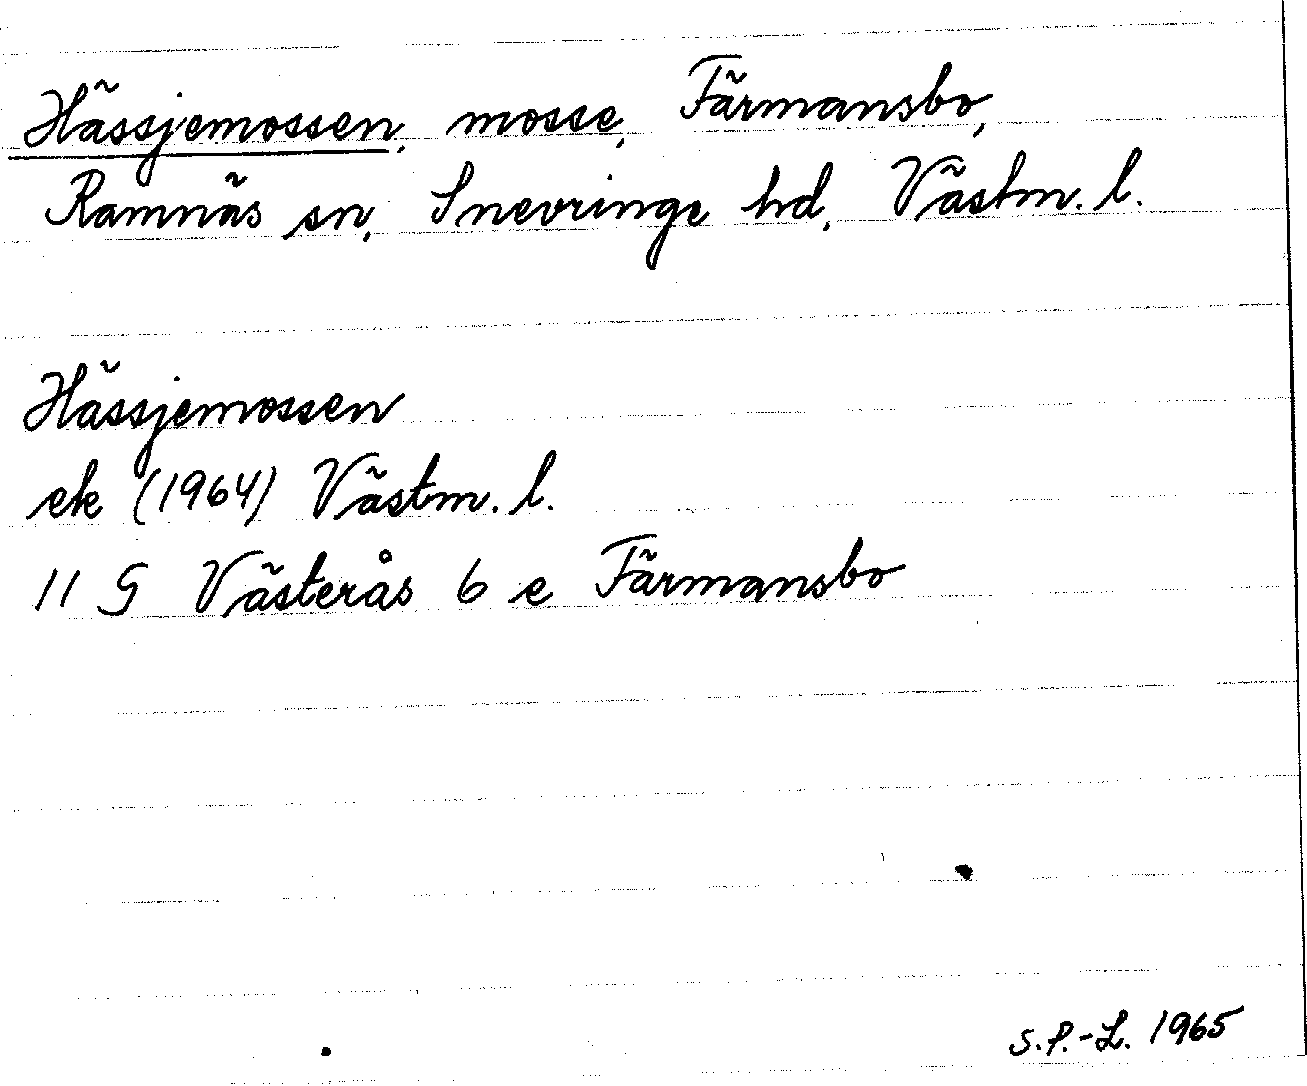 Hässjemossen, mosse, Färmansbo,
Ramnäs sn, Snevringe hd, Västm. l.
Hässjemossen
ek (1964) Västm. l.
11 G Västerås 6 e Färmansbo
S.P.-L. 1965